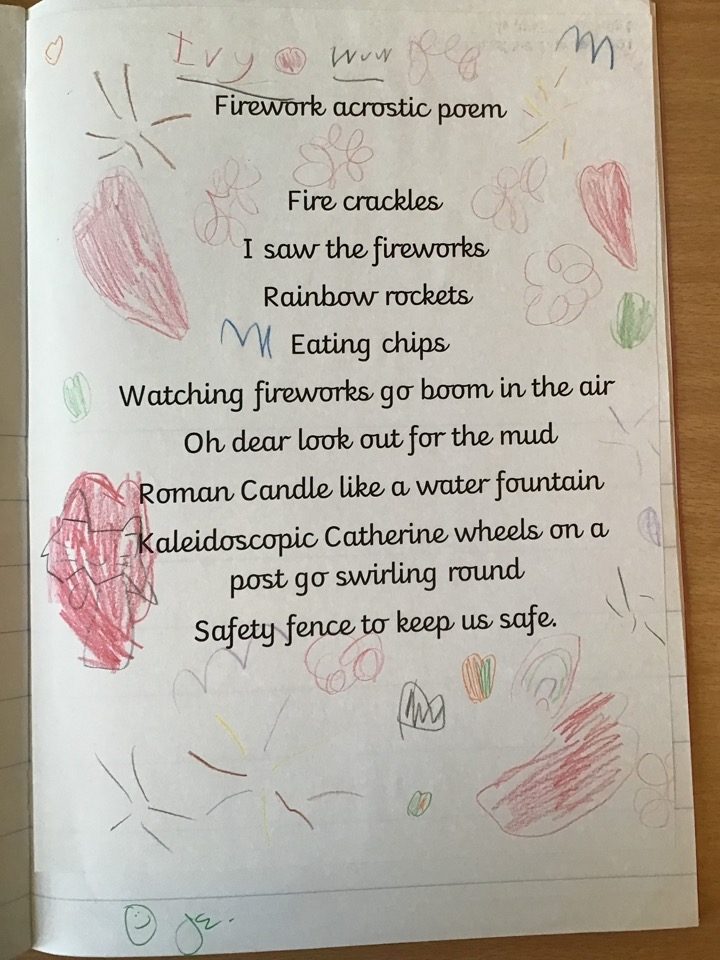 Ivy wow
Firework acrostic poem
Fire crackles
I saw the fireworks
Rainbow rockets
Eating chips
Watching fireworks go boom in the air
Oh dear look out for the mud
Roman Candle like a water fountain
Kaleidoscopic Catherine wheels on a
post go swirling round
Safety fence to keep us safe.